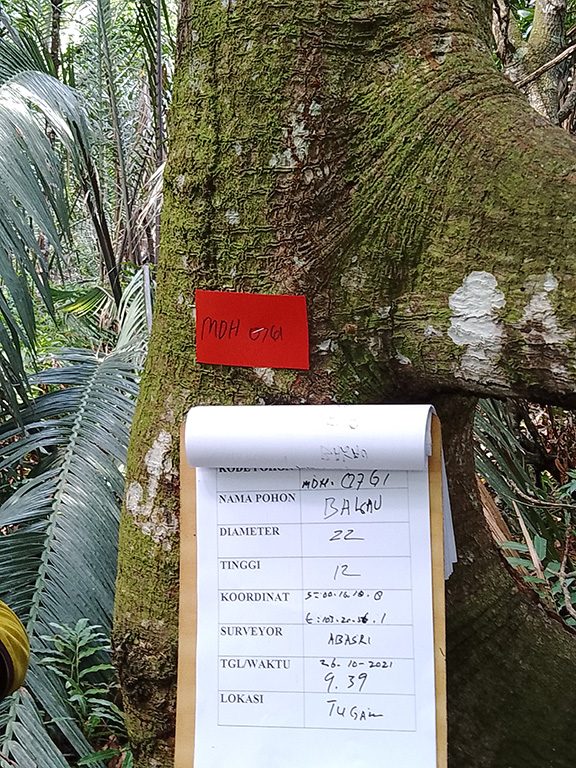 MDH 0761
MDH. 0761
NAMA POHON BAKAU
DIAMETER 22
TINGGI 12
KOORDINAT S=00.16.18.8
E:103.20.56.1
SURVEYOR ABASRI
TGL/WAKTU 26-10-2021
9.39
LOKASI